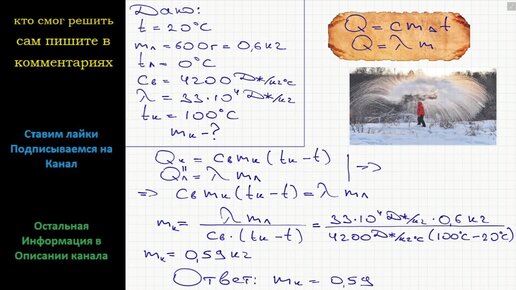 кто смог решить
сам пишите в
комментариях
Ставим лайки
Подписываемся на
Канал
Остальная
Информация в
Описании канала
Дано:
t = 20°C
mл = 600г = 0,6кг
tл = 0°C
Cв = 4200 Дж/кг°C
λ = 33·10⁴ Дж/кг
tк = 100°C
mк - ?
Q = cm△t
Q = λm
Qк = Cв mк (tк - t)
Qл = λ mл
=>
=> Cв mк (tк - t) = λ mл
mк = λ mл / Cв·(tк - t) = 33·10⁴ Дж/кг · 0,6кг / 4200 Дж/кг°C (100°C - 20°C)
mк = 0,59кг
Ответ: mк = 0,59